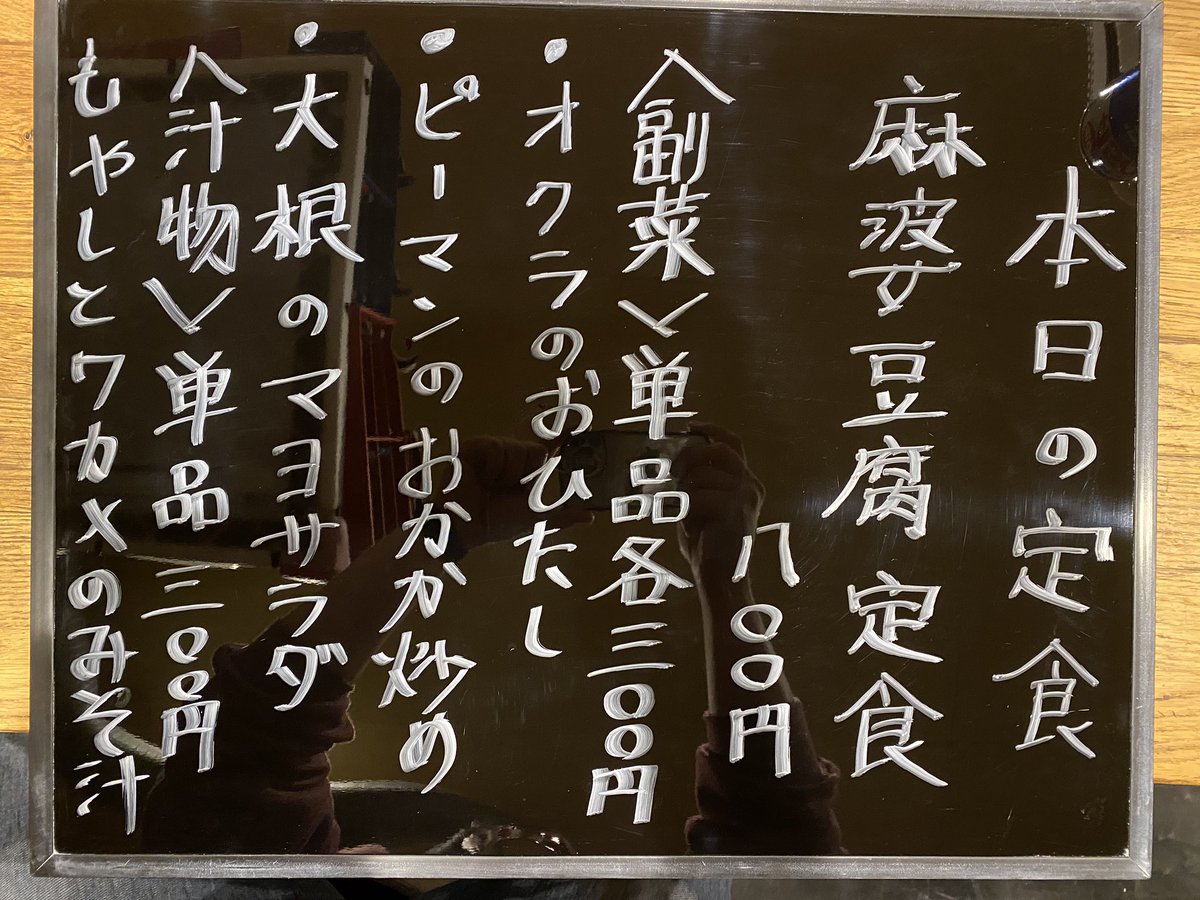 本日の定食
麻波女豆腐定食
八〇〇円
〈副菜〉単品各三〇〇円
・オクラのおひたし
・ピーマンのおかか炒め
・大根のマヨサラダ
〈汁物〉単品三〇〇円
もやしとワカメのみそ汁